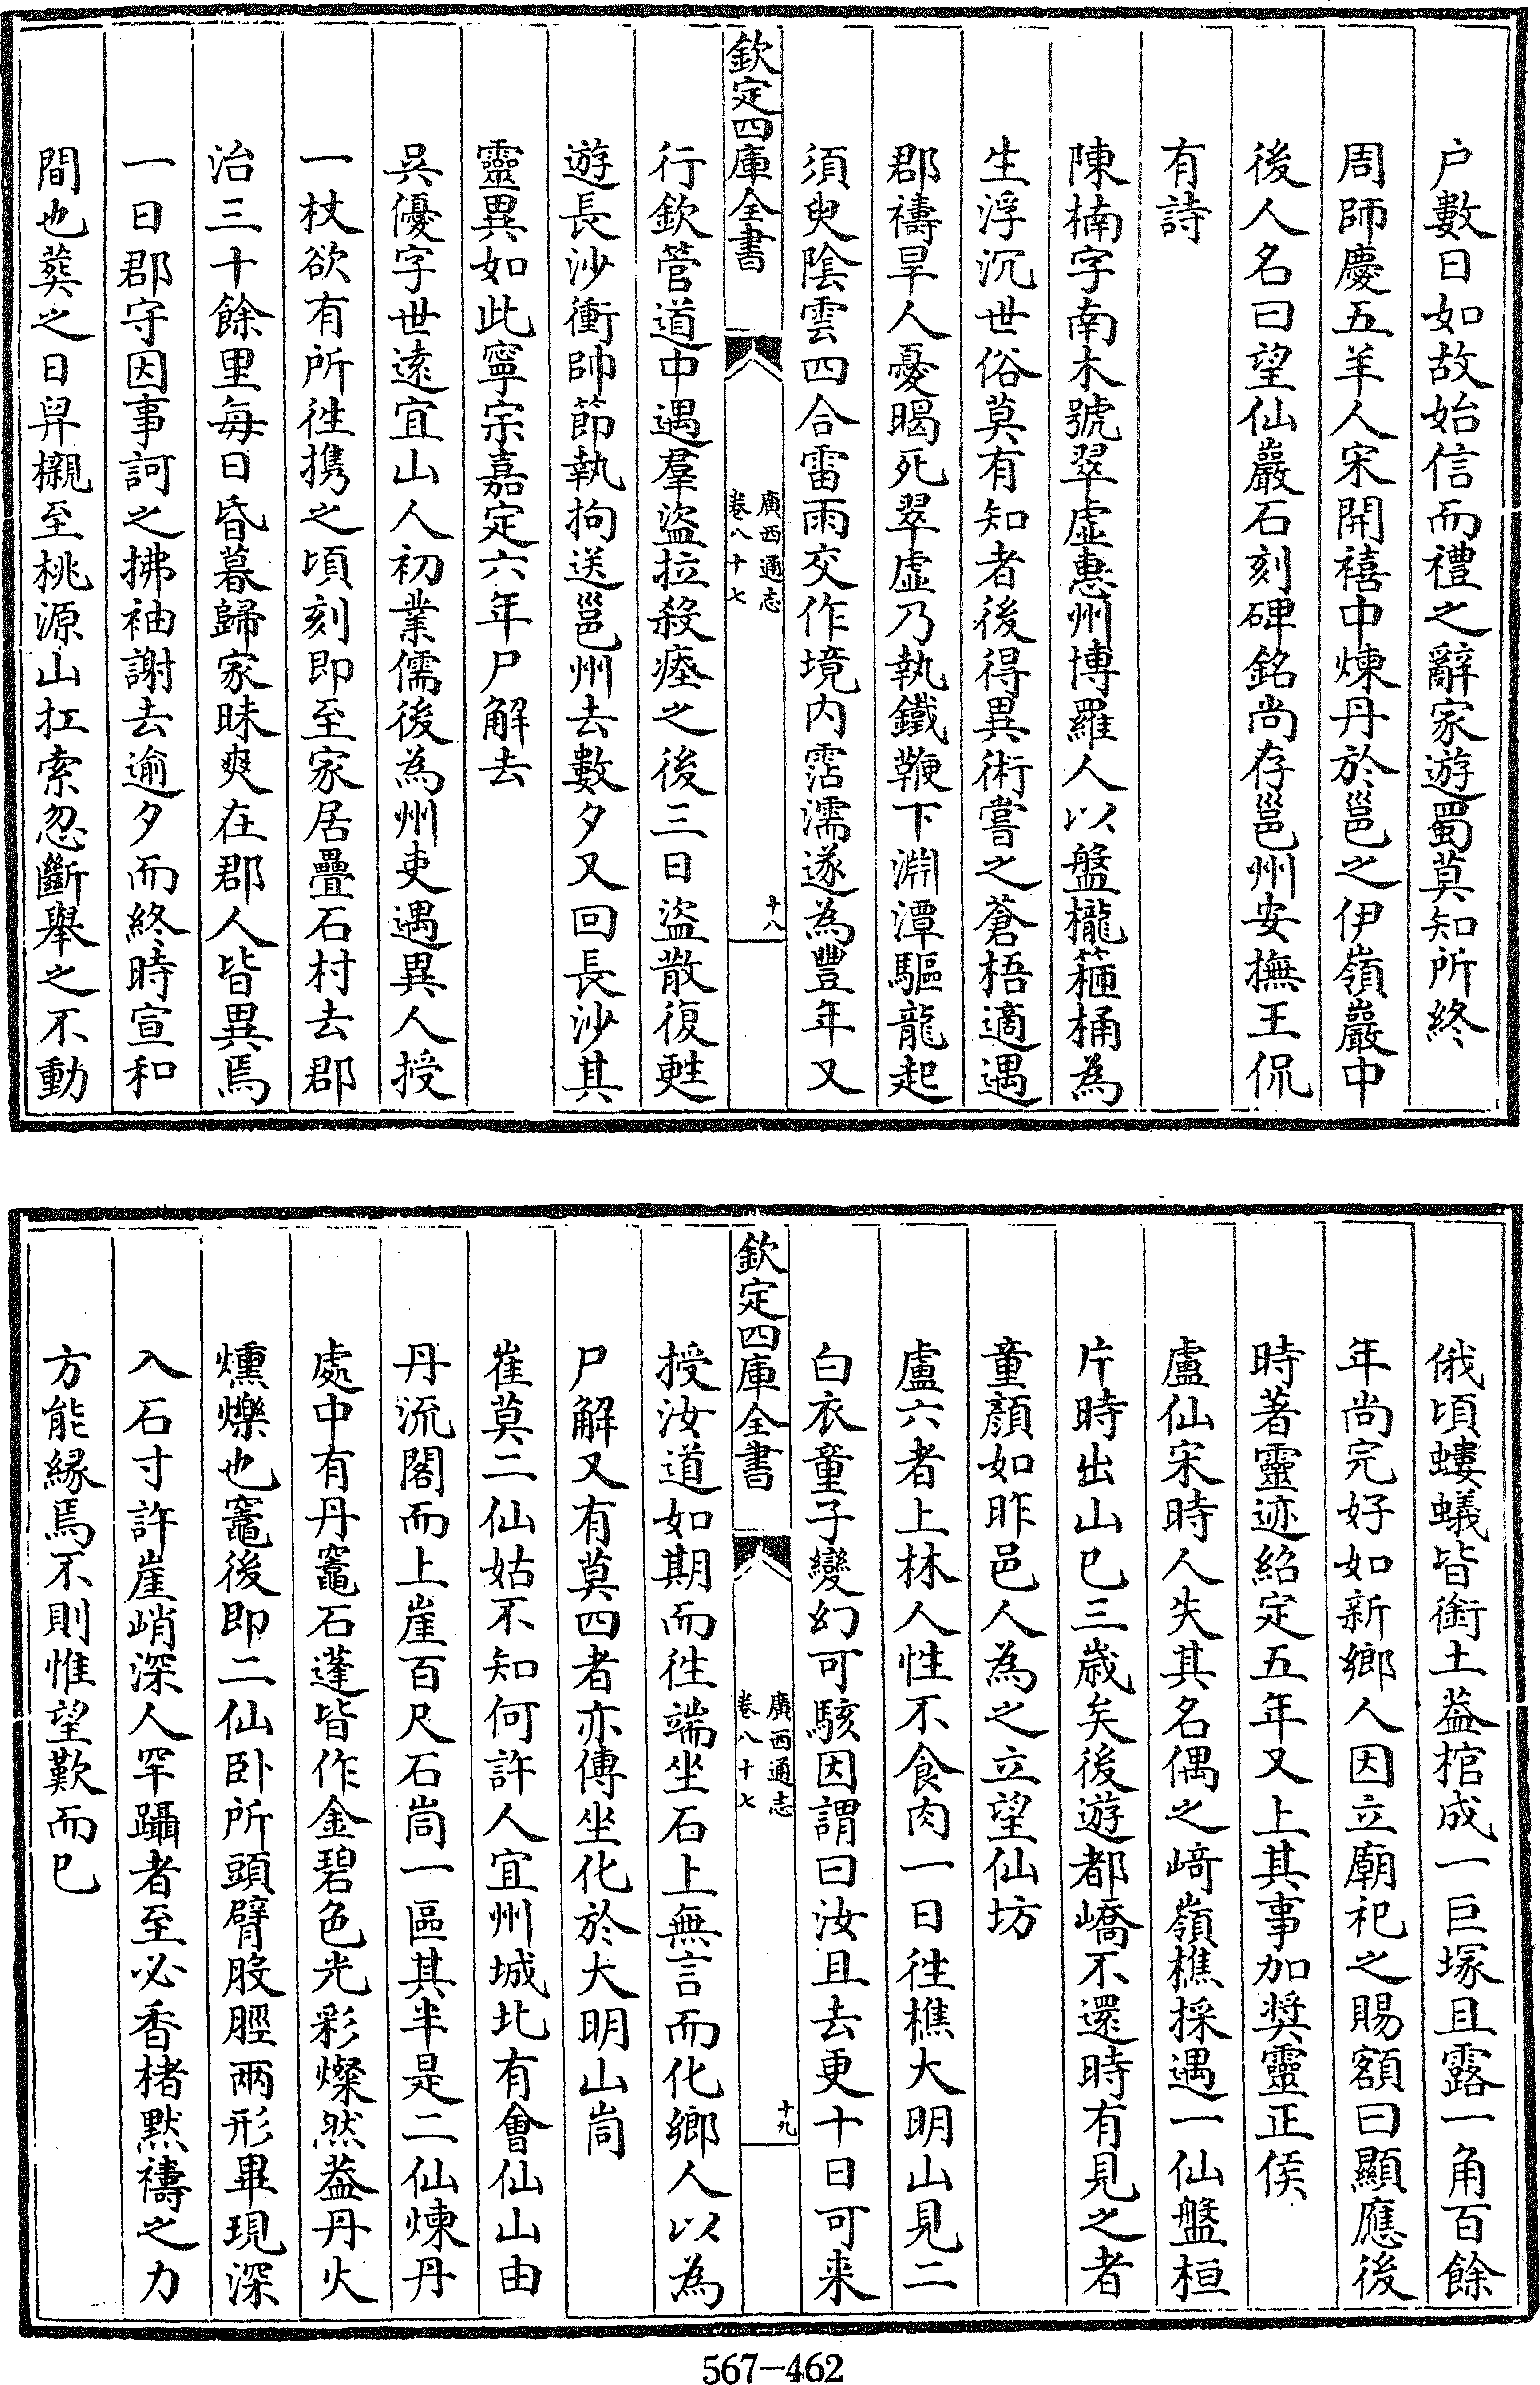 户數日如故始信而禮之辭家遊蜀莫知所終
周師慶五羊人宋開禧中煉丹於邕之伊嶺巖中
後人名曰望仙巖石刻碑銘尚存邕州安撫王侃
有詩
陳楠字南木號翠虛惠州博羅人以盤櫳箍桶為
生浮沉世俗莫有知者後得異術嘗之蒼梧適遇
郡禱旱人憂暍死翠虛乃執鐵鞭下淵潭驅龍起
須臾陰雲四合雷雨交作境内霑濡遂為豐年又
欽定四庫全書
廣西通志
卷八十七
十八
行欽管道中遇羣盜拉殺瘞之後三日盜散復甦
遊長沙衝帥節執拘送邕州去數夕又回長沙其
靈異如此寧宗嘉定六年尸解去
吳優字世遠宜山人初業儒後為州吏遇異人授
一杖欲有所往携之頃刻即至家居疊石村去郡
治三十餘里每日昏暮歸家昧爽在郡人皆異焉
一日郡守因事訶之拂袖謝去逾夕而終時宣和
間也葬之日舁櫬至桃源山扛索忽斷舉之不動
俄頃螻蟻皆銜土葢棺成一巨塚且露一角百餘
年尚完好如新鄉人因立廟祀之賜額曰顯應後
時著靈迹紹定五年又上其事加奨靈正侯
盧仙宋時人失其名偶之﨑嶺樵採遇一仙盤桓
片時出山已三歲矣後遊都嶠不還時有見之者
童顏如昨邑人為之立望仙坊
盧六者上林人性不食肉一日往樵大明山見二
白衣童子變幻可駭因謂曰汝且去更十日可来
欽定四庫全書
廣西通志
卷八十七
十九
授汝道如期而往端坐石上無言而化鄉人以為
尸解又有莫四者亦傳坐化於大明山峝
崔莫二仙姑不知何許人宜州城北有會仙山由
丹流閣而上崖百尺石峝一區其半是二仙煉丹
處中有丹竈石蓬皆作金碧色光彩燦然葢丹火
燻爍也竈後即二仙卧所頭臂股脛兩形畢現深
入石寸許崖峭深人罕躡者至必香楮默禱之力
方能緣焉不則惟望歎而已
567-462